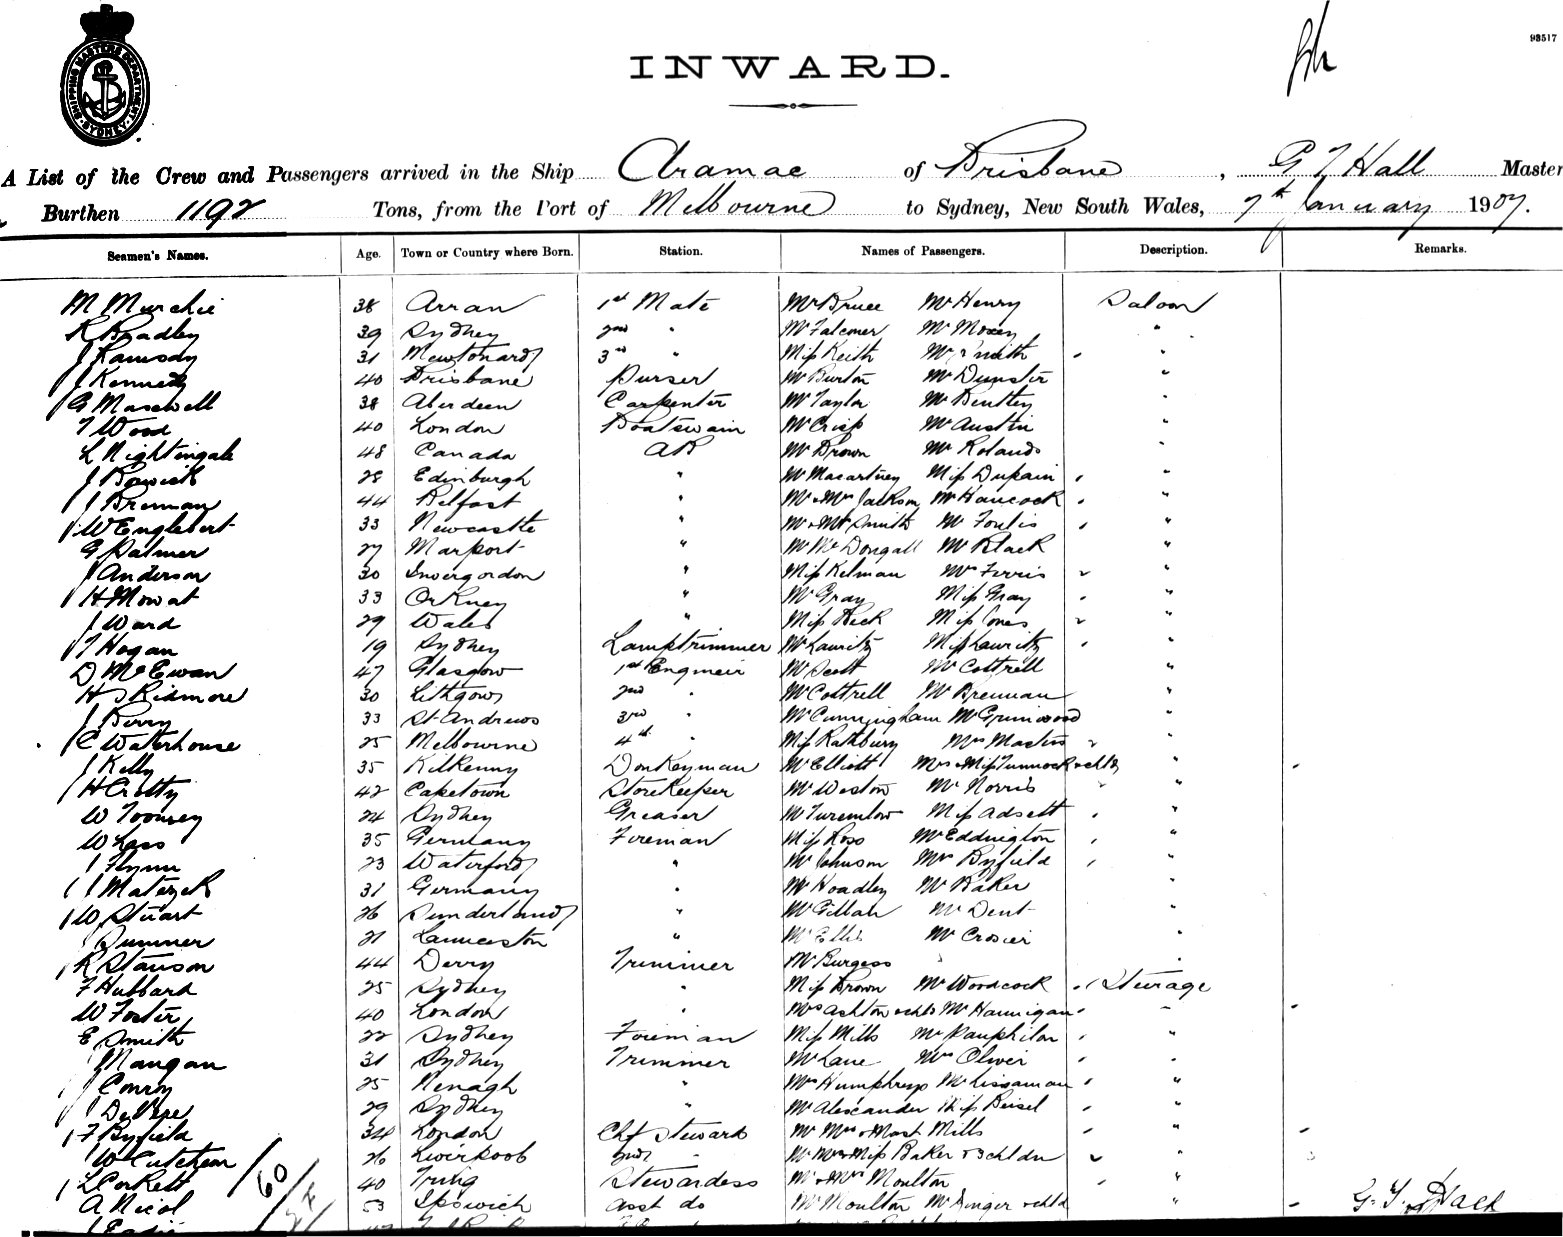 98517
SHIPPING MASTERS DEPARTMENT SYDNEY
INWARD.
A List of the Crew and Passengers arrived in the Ship Aramac of Brisbane, G T Hall Master
Burthen 1192 Tons, from the Port of Melbourne to Sydney, New South Wales, 7th January 1907.
Seamen's Names. Age. Town or Country where Born. Station. Names of Passengers. Description. Remarks.
M Murchie 38 Arran 1st Mate Mr Bruce Mr Henry Saloon
R Bradley 39 Sydney 2nd " Mr Falconer Mr Moxey "
J Ramsay 31 Newtonards 3rd " Miss Keith Mr Smith "
J Kennedy 40 Brisbane Purser Mr Burton Mr Dunster "
G Maxwell 38 Aberdeen Carpenter Mr Taylor Mr Bentley "
T Wood 40 London Boatswain Mr Crisp Mr Austin "
L Nightingale 48 Canada AB Mr Brown Mr Rolands "
J 28 Edinburgh " Mr Macartney Miss Dupain "
J Brennan 44 Belfast " Mr & Mrs Jackson Mr Hancock "
W Englebert 33 Newcastle " Mr & Mrs Smith Mr Foulis "
G Palmer 27 Marport " Mr McDougall Mr Black "
J Anderson 30 Invergordon " Miss Kelman Mrs Ferris "
H Mowat 33 Orkney " Mr Gray Miss Gray "
J Ward 29 Wales " Miss Miss Jones "
T Hogan 19 Sydney Lamptrimmer Mr Lauritz Miss Lauritz "
D McEwan 47 Glasgow 1st Engineir Mr Scott Mr Cottrell "
H Skidmore 30 Lithgow 2nd " Mr Cottrell Mr Brennan "
J Berry 33 St Andrews 3rd " Mr Cunningham Mr Grimwood "
C Waterhouse 25 Melbourne 4th " Miss Rathbury Mrs Masters "
J Kelly 35 Kilkenny Donkeyman Mr Elliott Mrs & Miss Tunnock & chld "
H Crotty 42 Capetown Storekeeper Mr Weston Mr Norris "
W Toomey 24 Sydney Greaser Mr Miss Adsett "
W Lass 35 Germany Foreman Miss Ross Mr Eddington "
J Flynn 23 Waterford " Mr Johnson Mrs Byfield "
J 31 Germany " Mr Hoadley Mr Baker "
W Stuart 26 Sunderland " Mr Gillah Mr Dent "
J Sumner 21 Launceston " Mr Ellis Mr Crosier "
R Stanson 44 Derry Trimmer Mr Burgess "
F Hubbard 25 Sydney " Miss Brown Mr Woodcock Steurage
W Foster 40 London " Mrs Ashton & chld Mr Hannigan "
E Smith 22 Sydney Foreman Miss Mills Mr Pamphilon "
J Mangan 31 Sydney Trimmer Mr Lane Mrs Oliver "
J Conroy 25 Nenagh " Mrs Humphreys Mr Lissaman "
J 29 Sydney " Mr Alexander Miss Beisel "
F Byfield 34 London Chf Steward Mr Mrs & Mast Mills "
W Cutcheon 26 Liverpool 2nd " Mr Mrs & Miss Baker & 3chldn "
L Corkett 40 Tring Stewardess Mr & Mrs Moulton "
A Nicol 53 Ipswich Asst do Mr Moulton Mr Singer & chld "
60
G. T. Hall